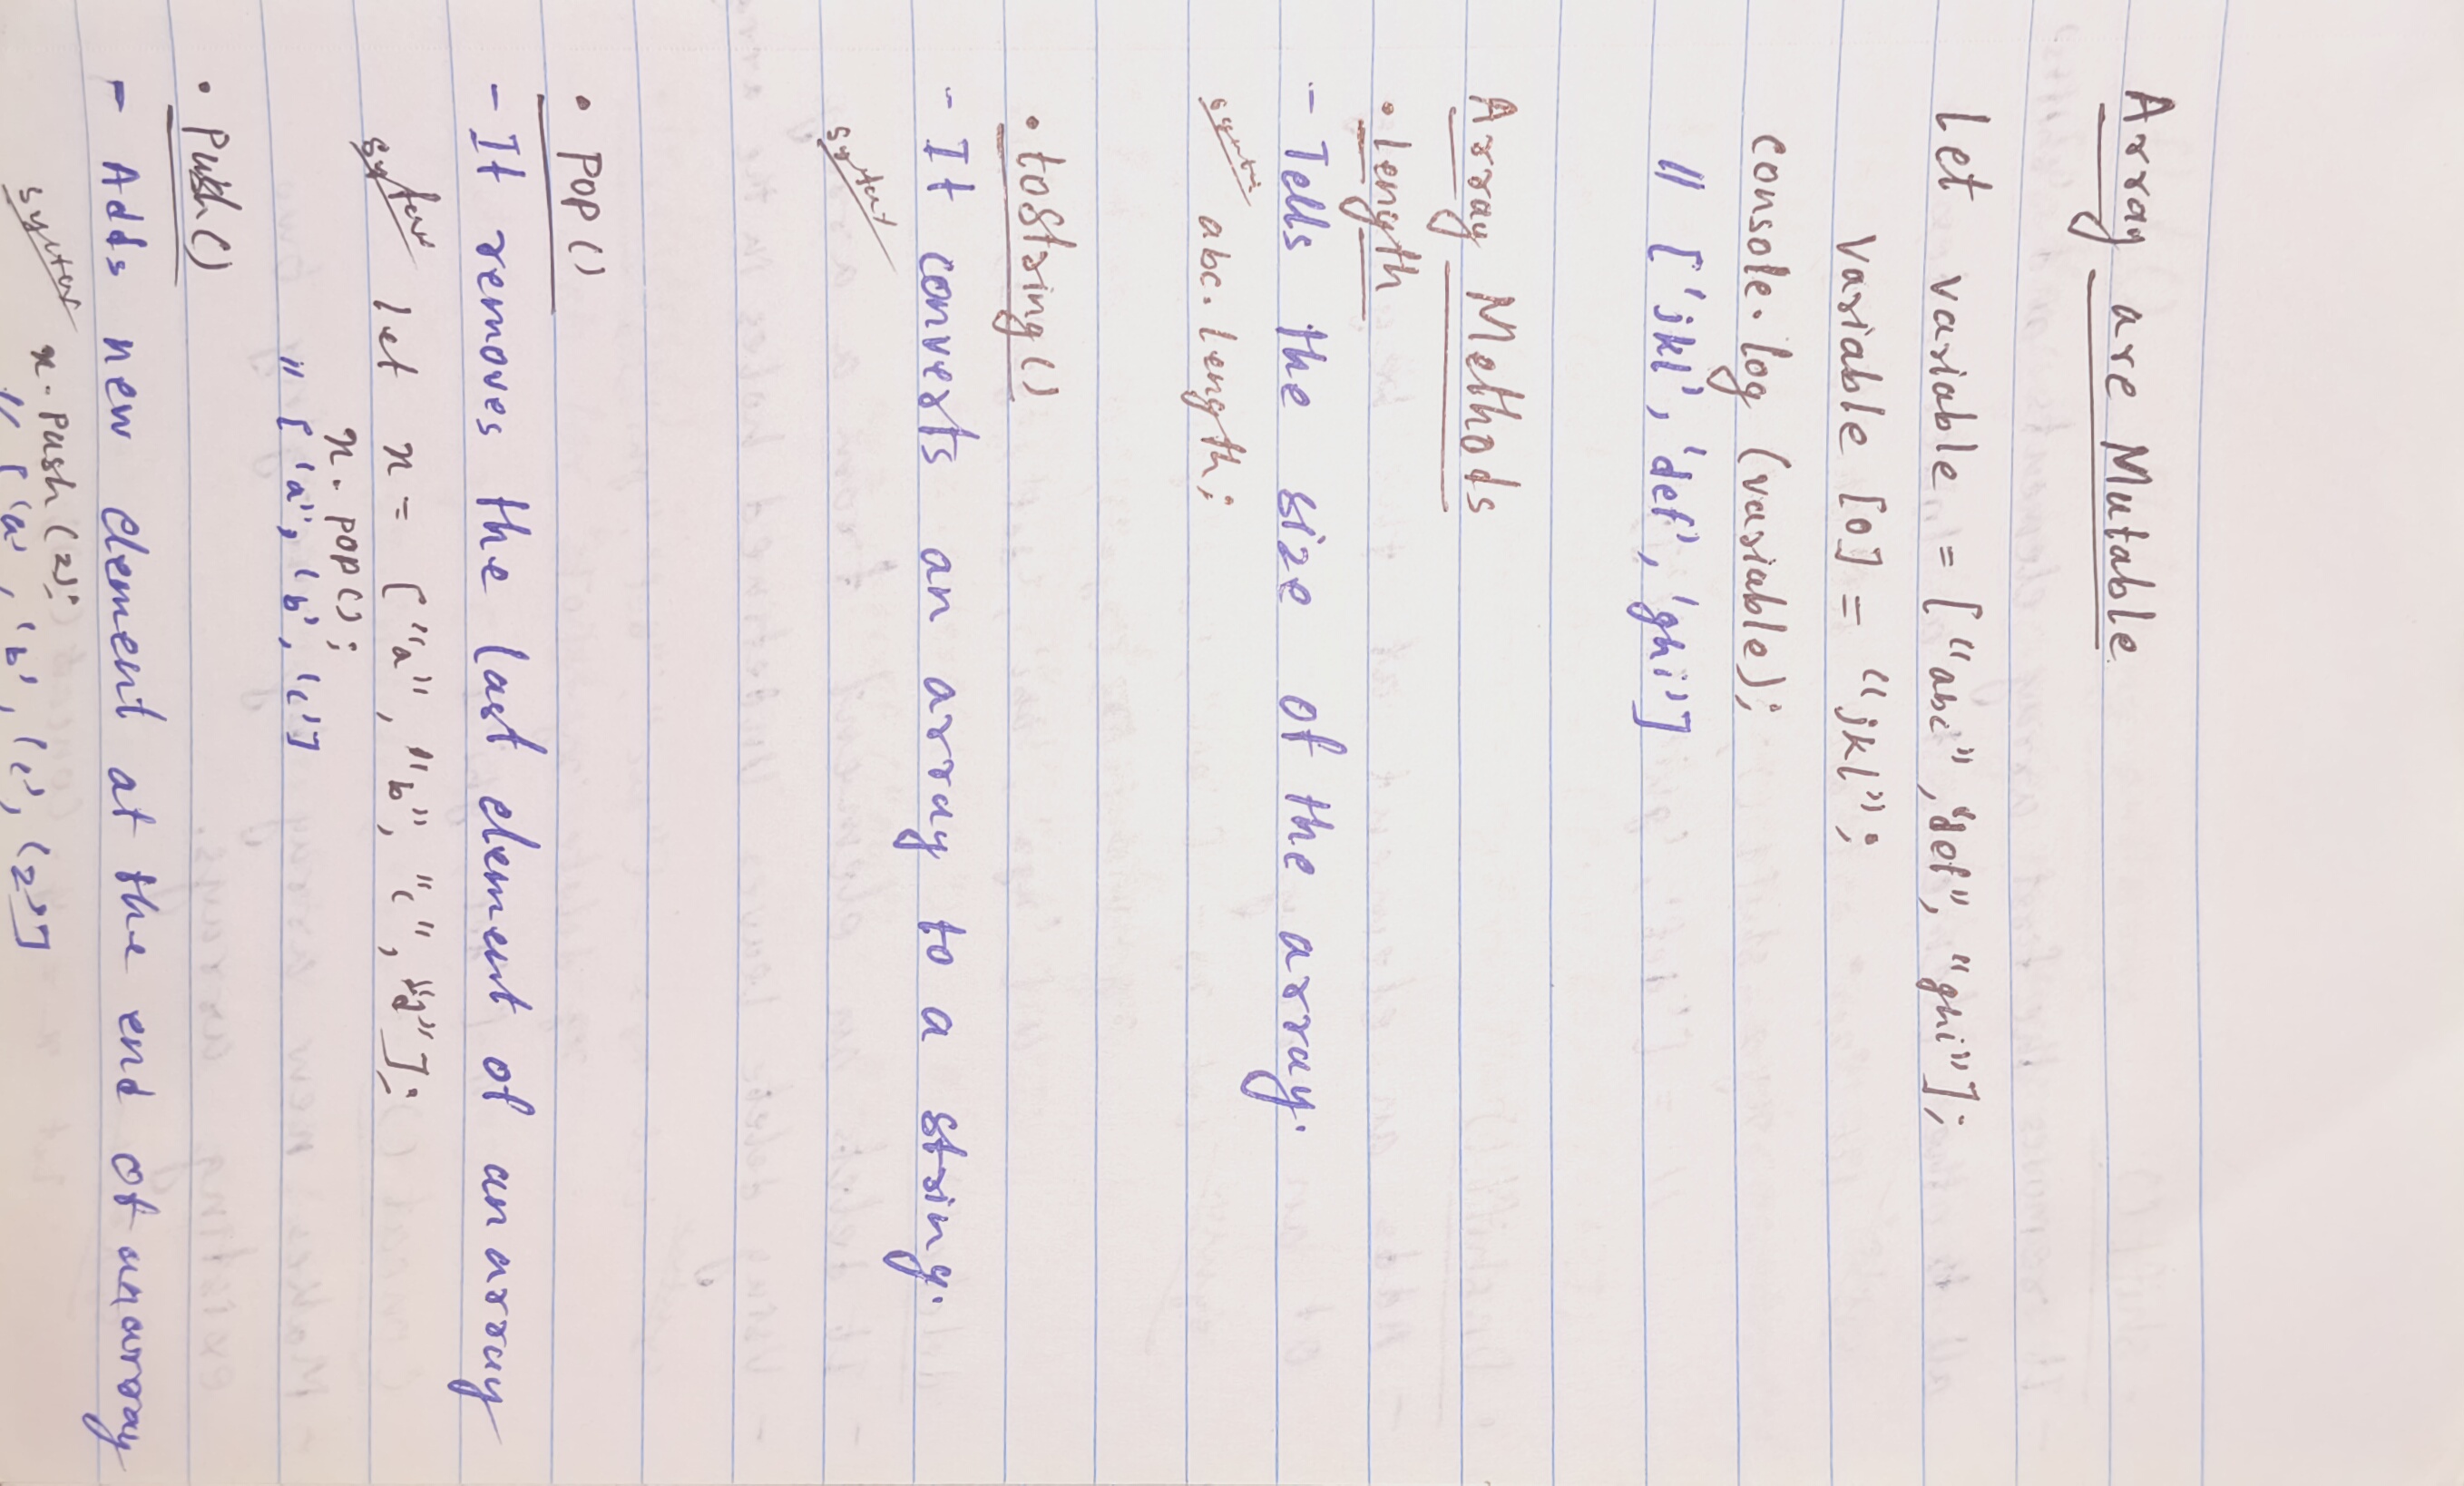 Array are Mutable
Let variable = ["abc", "def", "ghi"];
variable [0] = "jkl";
console.log (variable);
// ['jkl', 'def', 'ghi']
Array Methods
• length
- Tells the size of the array.
abc.length;
• toString()
- It converts an array to a string.
Syntax
• pop()
- It removes the last element of an array
Syntax let x = ["a", "b", "c", "d"];
x.pop();
// ['a", 'b', 'c']
• push()
- Adds new element at the end of an array
Syntax x.push(2);
// ['a', 'b', 'c', '2']